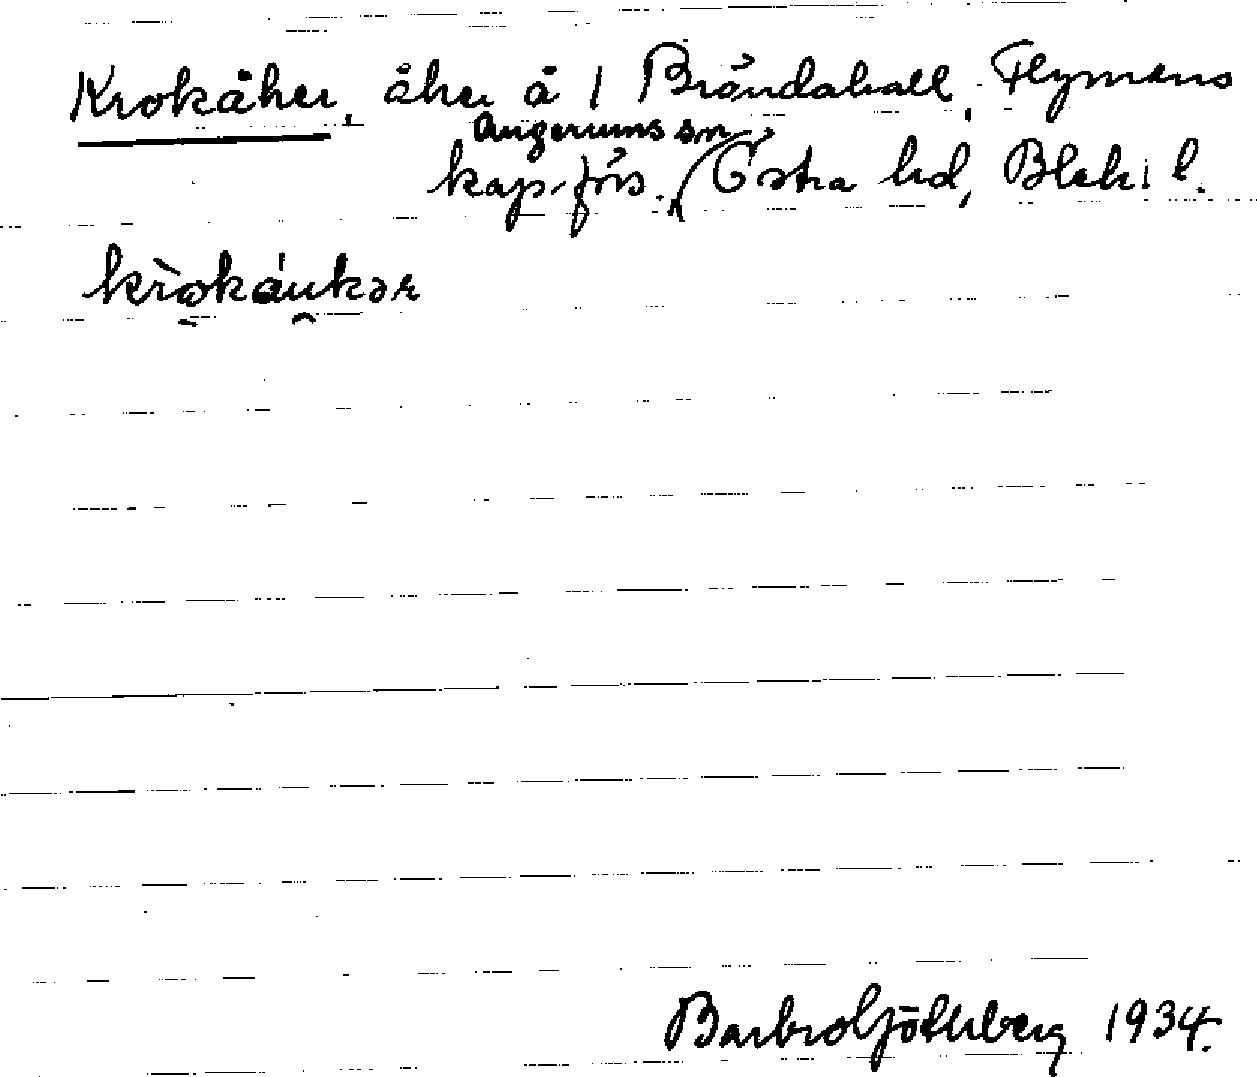 Krokåker, åker å 1 Bröndahall, Flymens
Augerums sn
kap.förs., Östra hd, Blek. l.
krokáukər
Barbro Göthberg 1934.